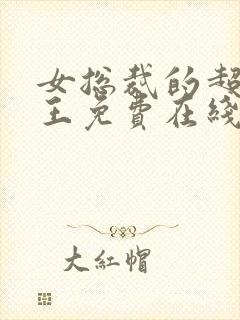 女总裁的超
王免費在綫
大紅帽